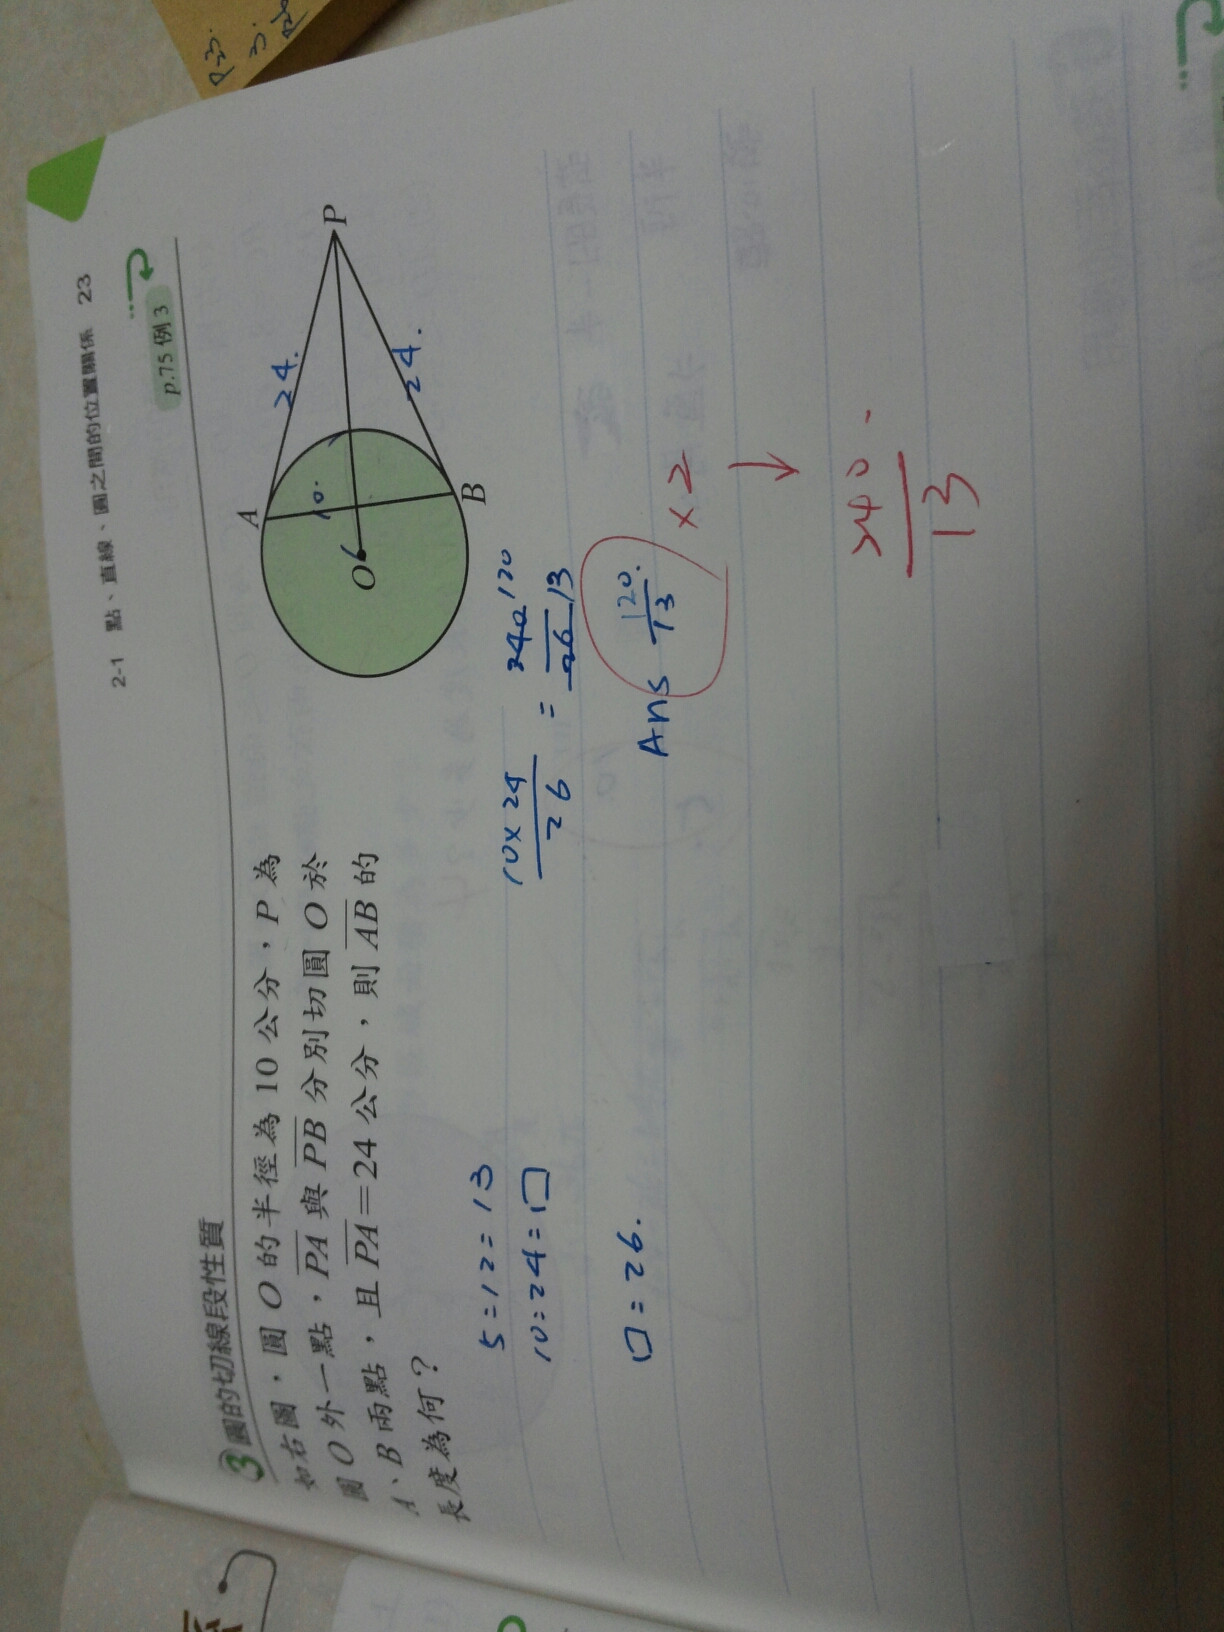 2-1 點、直線、圓之間的位置關係 23
3 圓的切線段性質
p.75 例 3
如右圖，圓 O 的半徑為 10 公分，P 為
圓 O 外一點，PA 與 PB 分別切圓 O 於
A、B 兩點，且 PA=24 公分，則 AB 的
長度為何？
A
24.
P
10.
O
24.
B
5=12=13
10=24=□
□=26.
10×24/26 = 240/26 120/13
Ans 120/13 ×2
↓
240/13